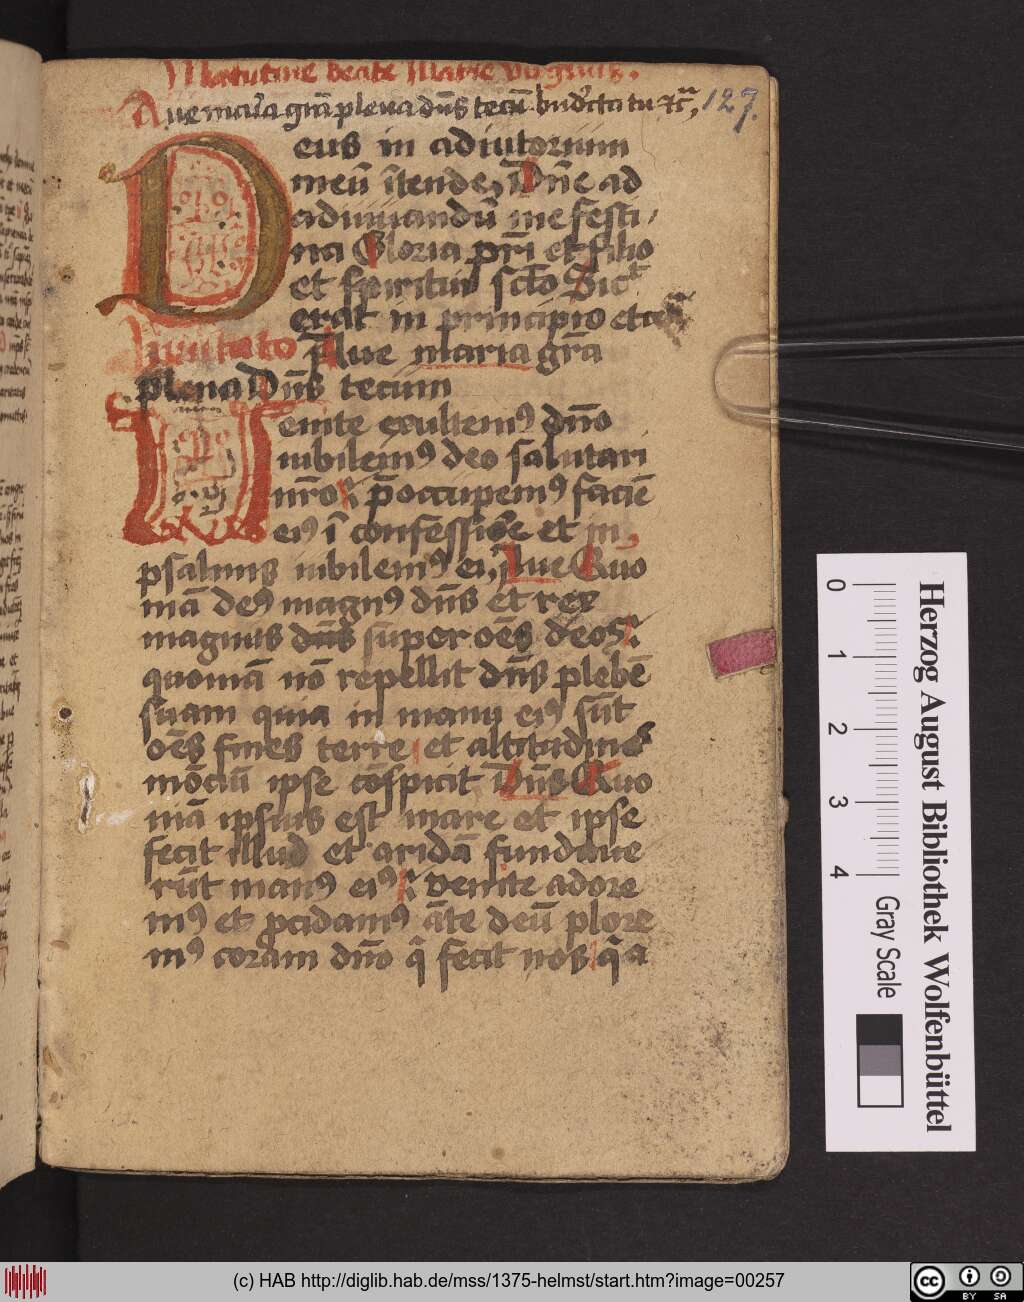 Matutine beate Marie virginis.
Aue maria grā plena dn̄s tecū
127.
Deus in adiutorium
meū ītende Dn̄e ad
adiuuandū me festi
na Gloria pr̄i et filio
et spiritui scto Sic
erat in principio et
Inuitato Aue maria gr̄a
plena Dn̄s tecum
Venite exultemꝰ dn̄o
iubilemꝰ deo salutari
nr̄o p̄occupemꝰ faciē
eiꝰ ī confessiōe et in
psalmis iubilemꝰ ei, Aue Quo
niā deꝰ magnꝰ dn̄s et rex
magnus dn̄s super oēs deos
quoniā nō repellit dn̄s plebē
suam quia in manu eiꝰ sūt
oēs fines terre et altitudines
mōtiū ipse cōspicit Dn̄s Quo
niā ipsius est mare et ipse
fecit illud et aridā fundaue
rūt manꝰ eiꝰ venite adore
mꝰ et pcidamꝰ āte deū plore
mꝰ coram dn̄o q̄ fecit nos q̄a
Herzog August Bibliothek Wolfenbüttel
0 1 2 3 4
Gray Scale
(c) HAB http://diglib.hab.de/mss/1375-helmst/start.htm?image=00257
cc BY SA